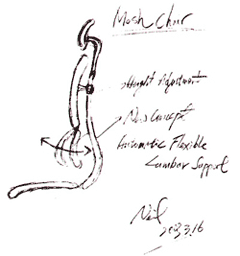 Mesh Chair
Height Adjustment
New Concept
Automatic Flexible
Lumbar Support